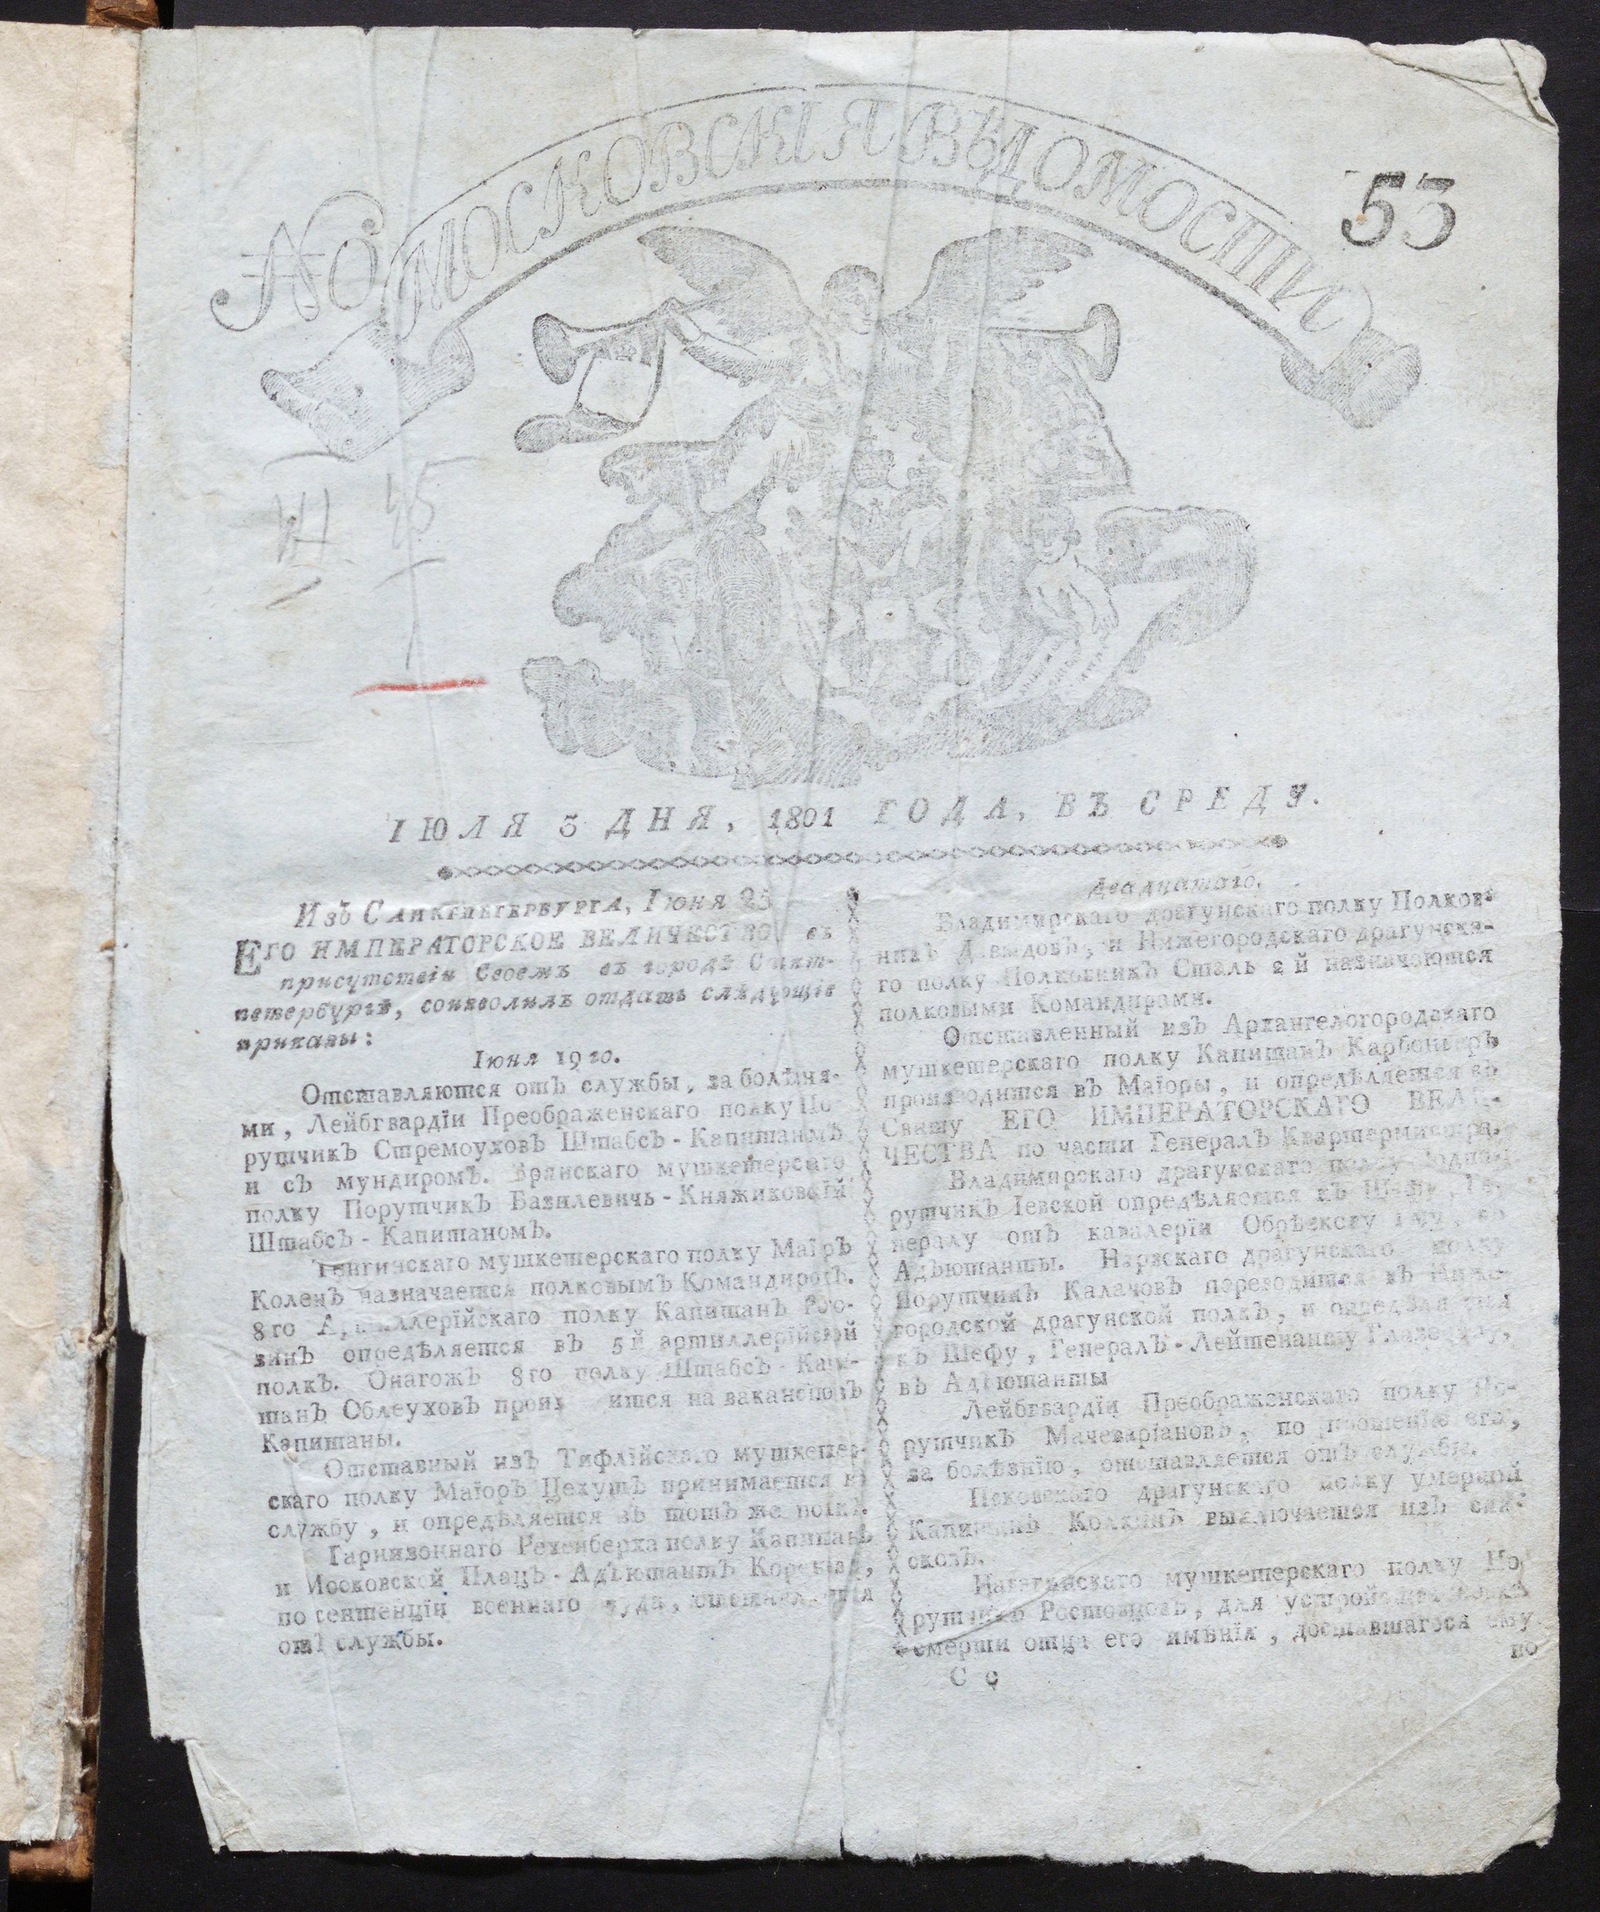 No МОСКОВСКІЯ ВѢДОМОСТИ 53
ІЮЛЯ 3 ДНЯ, 1801 ГОДА, ВЪ СРЕДУ.
Изъ Санктпетербурга, Іюня 25
Его ИМПЕРАТОРСКОЕ ВЕЛИЧЕСТВО въ
присутствіи Своемъ въ городѣ Санкт-
петербургѣ, соизволилъ отдать слѣдующіе
приказы:
Іюня 19 го.
Отставляются отъ службы, за болѣзня-
ми, Лейбгвардіи Преображенскаго полку По-
ручикъ Стремоуховъ Штабсъ-Капитаномъ
и съ мундиромъ. Брянскаго мушкетерскаго
полку Порутчикъ Базилевичь-Княжиковскій
Штабсъ-Капитаномъ.
Тенгинскаго мушкетерскаго полку Маіоръ
Коленъ назначается полковымъ Командиромъ.
8го Артиллерійскаго полку Капитанъ
опредѣляется въ 5й артиллерійской
полкъ. Онагожъ 8го полку Штабсъ-Капи-
танъ Облеуховъ произ ится на вакансію въ
Капитаны.
Отставный изъ Тифлійскаго мушкетер-
скаго полку Маіоръ Цехушъ принимается въ
службу, и опредѣляется въ тотъ же полкъ.
Гарнизоннаго Рехенберха полку Капитанъ
и Московской Плацъ-Адъютантъ
по сентенціи военнаго суда, отставляется
отъ службы.
Двадцатаго.
Владимирскаго драгунскаго полку Полков-
никъ Давыдовъ, и Нижегородскаго драгунска-
го полку Полковникъ Сталь 2й назначаются
полковыми Командирами.
Отставленный изъ Архангелогородскаго
мушкетерскаго полку Капитанъ Карбоньеръ
производится въ Маіоры, и опредѣляется въ
Свиту ЕГО ИМПЕРАТОРСКАГО ВЕЛИ-
ЧЕСТВА по части Генералъ Квартермистра.
Владимирскаго драгунскаго полку Подпо-
рутчикъ Іевской опредѣляется къ Шефу, Ге-
нералу отъ кавалеріи Обрѣскову 1му, въ
Адъютанты. Нарвскаго драгунскаго полку
Порутчикъ Калачовъ переводится въ Ниже-
городской драгунской полкъ, и опредѣляется
къ Шефу, Генералъ-Лейтенанту
въ Адъютанты
Лейбгвардіи Преображенскаго полку По-
рутчикъ Мачеваріановъ, по прошенію его,
за болѣзнію, отставляется отъ службы.
Псковскаго драгунскаго полку умершій
Капитанъ Колкинъ выключается изъ спи-
сковъ.
мушкетерскаго полку По-
рутчикъ Ростовцовъ, для устройства послѣ
смерти отца его имѣнія, доставшагося ему
С с по